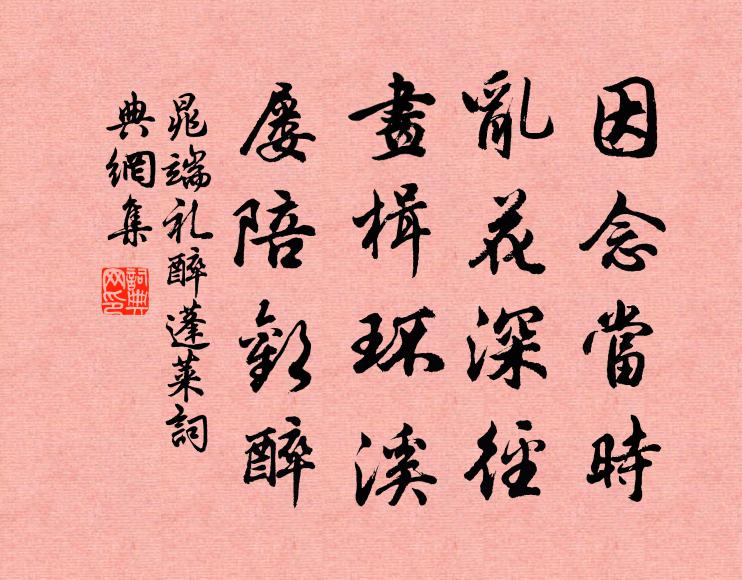 因念當時
亂花深徑
畫楫環溪
屢陪歡醉
晁端礼醉蓬萊詞
典網集
詞典
网印